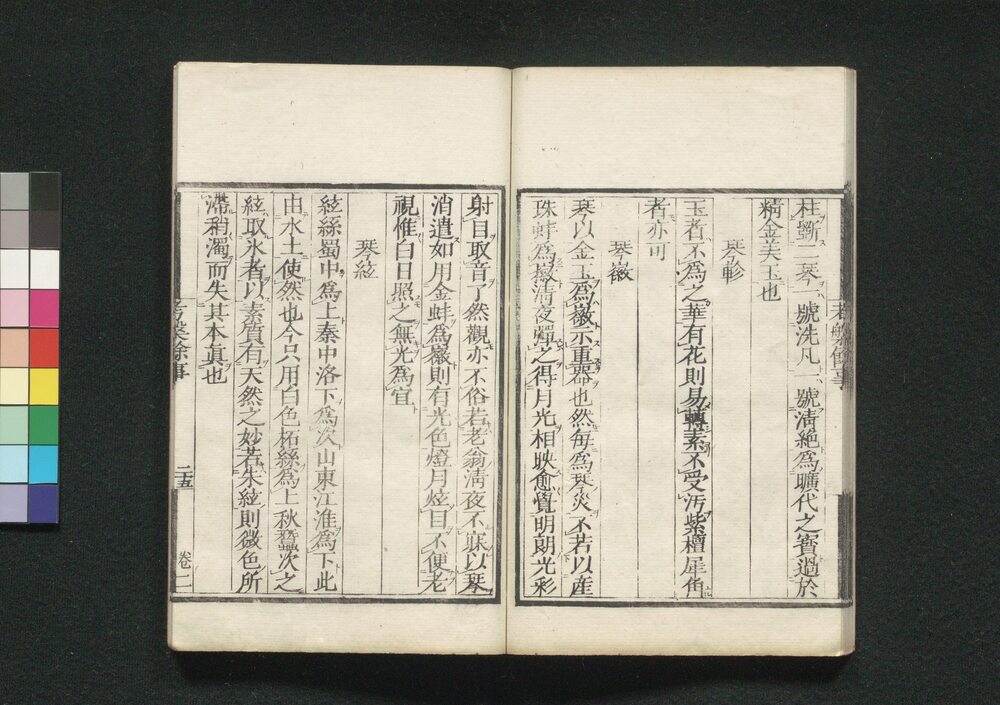 桂斲二琴一號洗凡一號淸絶爲曠代之寳過於
精金美玉也
琴軫
玉者不爲之華有花則易轉素不受汚紫檀犀角
者亦可
琴徽
琴以金玉爲徽示重噐也然每爲琴災不若以產
珠蚌爲徽淸夜彈之得月光相映愈覺明朗光彩
射目取音了然觀亦不俗若老翁淸夜不寐以琴
消遣如用金蚌爲徽則有光色燈月炫目不便老
視惟白日照之無光爲宜
琴絃
絃絲蜀中爲上秦中洛下爲次山東江淮爲下此
由水土使然也今只用白色柘絲爲上秋蠶次之
絃取氷者以素質有天然之妙若朱絃則微色所
滯稍濁而失其本眞也
考槃餘事
二十五
卷二